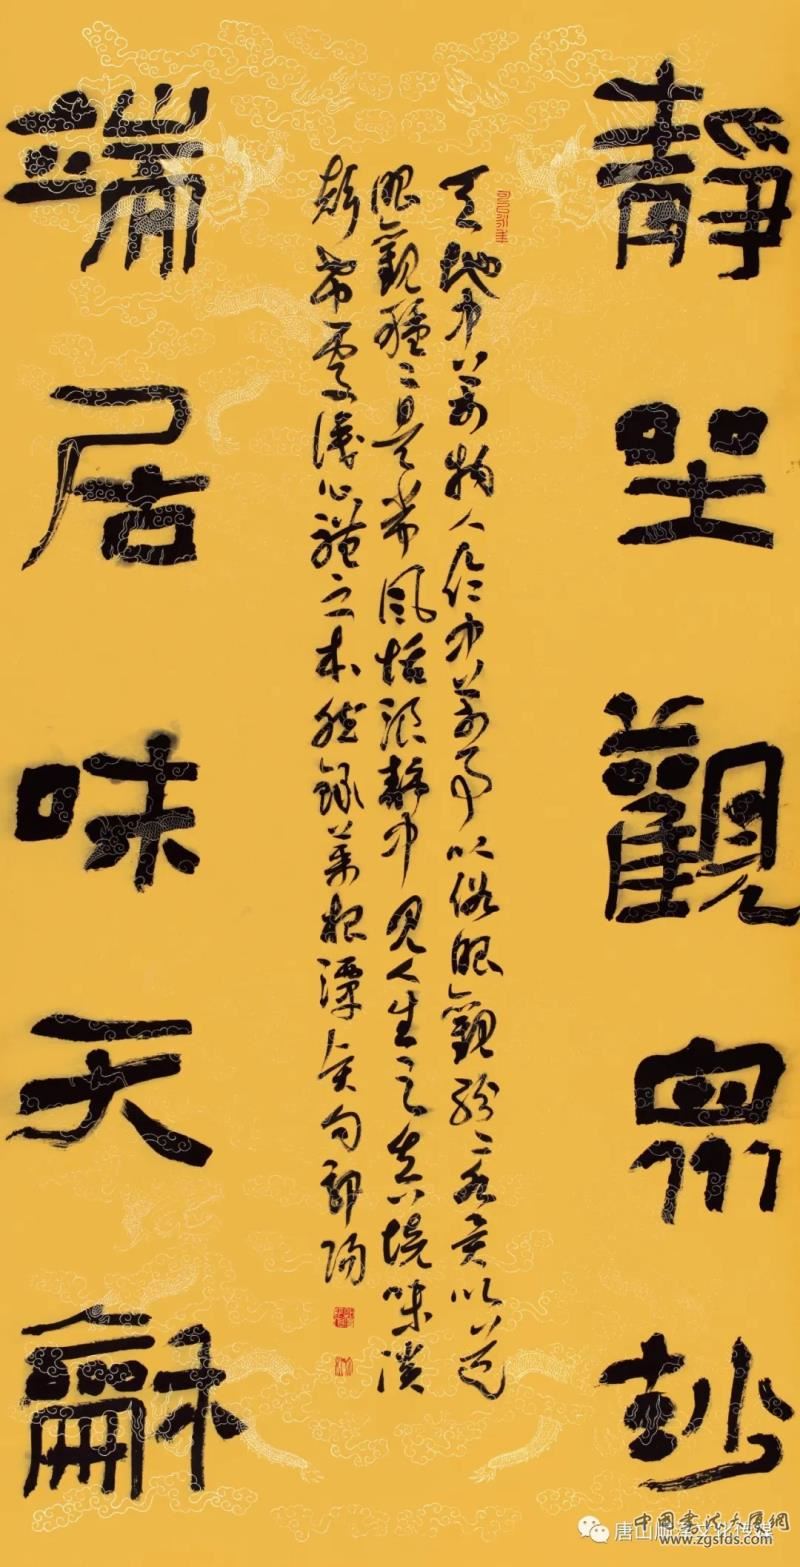 靜坐觀眾妙
天地中萬物人倫中萬事以俗眼觀紛〻各異以道
眼觀種〻是常風恬浪靜中見人生之真境味淡
聲希處識心體之本然錄菜根譚句
端居味天龢
唐山文化传媒
中國書法大廈網
www.zgsfds.com